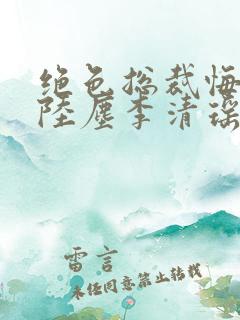 绝色总裁悔
陆尘李清瑶
雷言
未经同意禁止转载